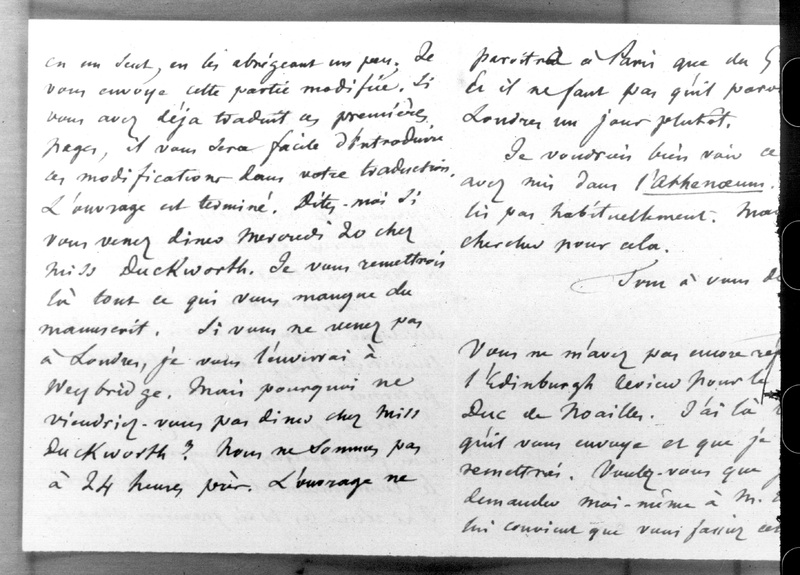 en un seul, en les abrégeant un peu. Je
vous envoye cette partie modifiée. Si
vous avez déja traduit ces premières
pages, il vous sera facile d'introduire
ces modifications dans votre traduction.
L'ouvrage est terminé. Dites-moi si
vous venez diner Mercredi 20 chez
miss Duckworth. Je vous remettrois
là tout ce qui vous manque du
manuscrit. Si vous ne venez pas
à Londres, je vous l'enverrai à
Weybridge. Mais pourquoi ne
viendriez-vous pas diner chez Miss
Duckworth? Nous ne sommes pas
à 24 heures près. L'ouvrage ne
paroitra à Paris que du
Et il ne faut pas qu'il
Londres un jour plutôt.
Je voudrois bien voir ce
avez mis dans l'Athenœum.
lis pas habituellement.
chercher pour cela.
Tout à vous
Vous ne m'avez pas encore
l'Edinburgh review pour le
Duc de Noailles. J'ai là
qu'il vous envoye et que je
remettrai. Voulez-vous que
demander moi-même à M.
lui convient que vous fassiez